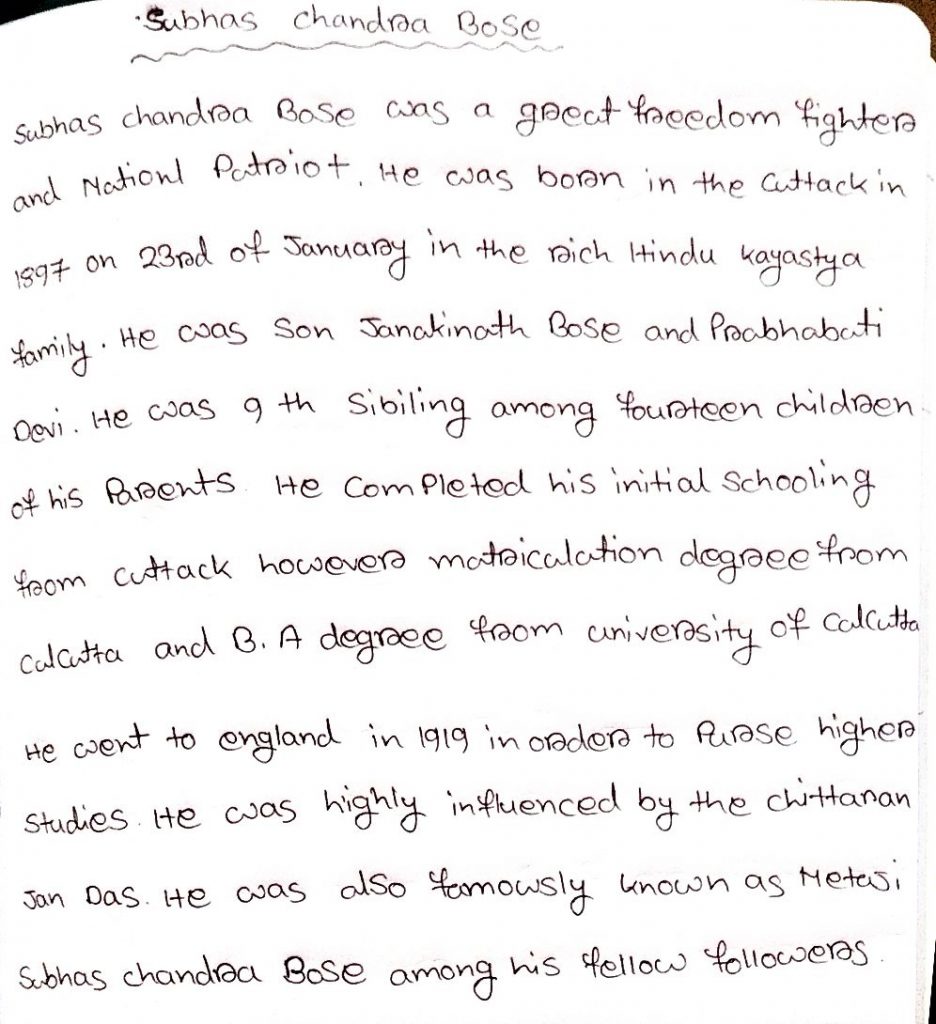 Subhas Chandra Bose
Subhas chandra Bose was a great freedom fighter
and Nationl Patriot. He was born in the Cuttack in
1897 on 23rd of January in the rich Hindu kayastya
family. He was Son Janakinath Bose and Prabhabati
Devi. He was 9 th Sibiling among fourteen children
of his Parents He Completed his initial Schooling
from Cuttack however matriculation degree from
Calcutta and B. A degree from university of Calcutta
He went to england in 1919 in order to Purse higher
Studies. He was highly influenced by the chittaran
Jan Das. He was also famowsly known as Netaji
Subhas chandra Bose among his fellow followers.